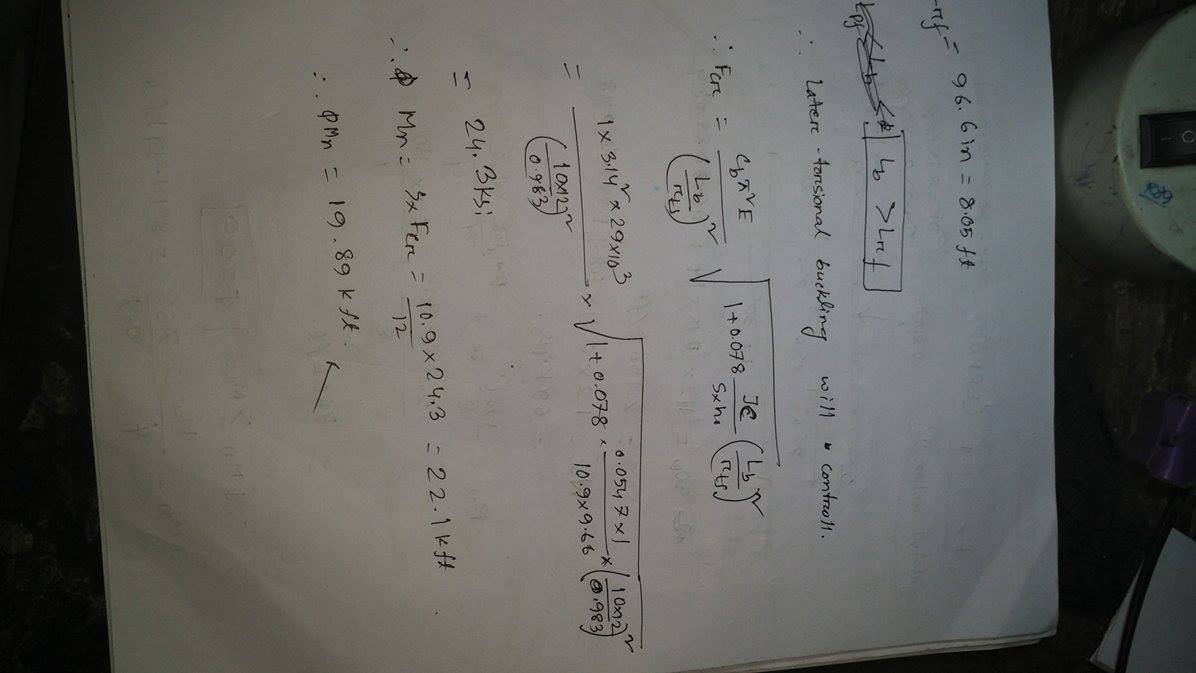 -rf = 96.6in = 8.05 ft
Lb > Lrf
∴ Later-torsional buckling will controll.
∴ Fcrc = Cbπ²E / (Lb/rts)² √(1+0.078 JC/Sxho (Lb/rts)²)
= 1 x 3.14² x 29x10³ / (10x12/0.983)² x √(1+0.078 x 0.0547 x 1 / 10.9x9.66 x (10x12/0.983)²)
= 24.3ksi
∴ Φ Mn = SxFcrc = 10.9 x 24.3 / 12 = 22.1 kft
∴ ΦMn = 19.89 kft.